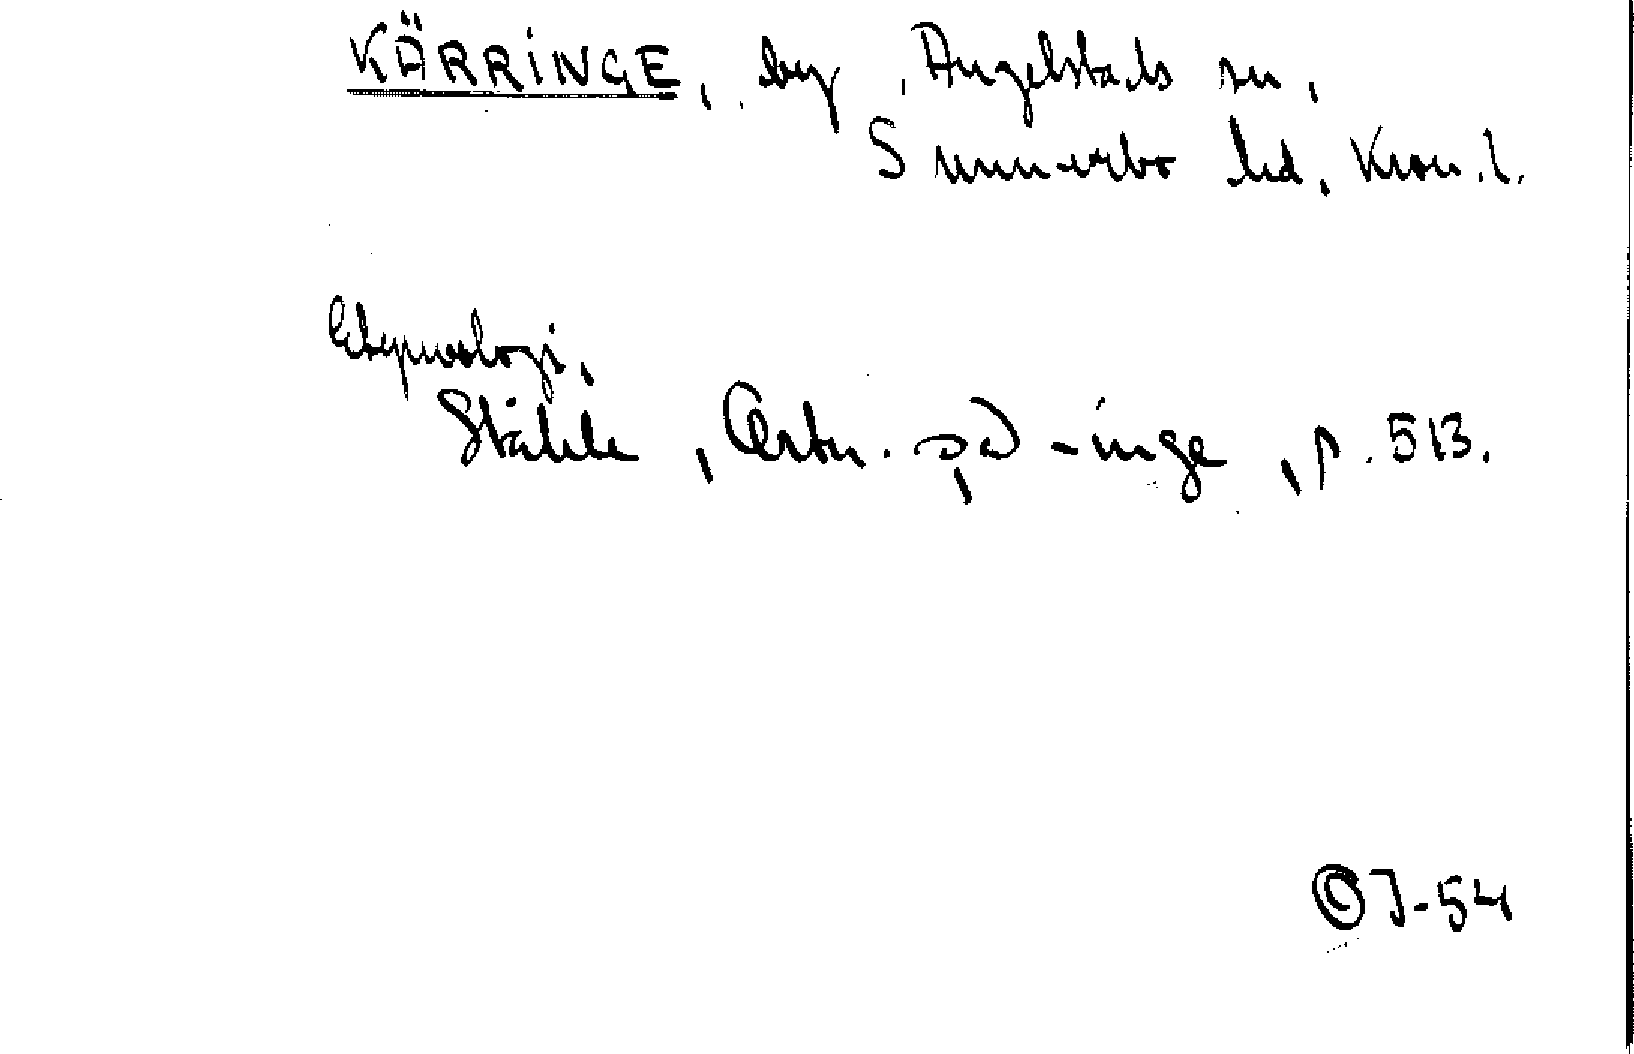 KÄRRINGE, by, Angelstads sn,
Sunnerbo hd, Kron. l.
Etymologi,
Ståhle, Ortn. på -inge, p. 513.
© J-54